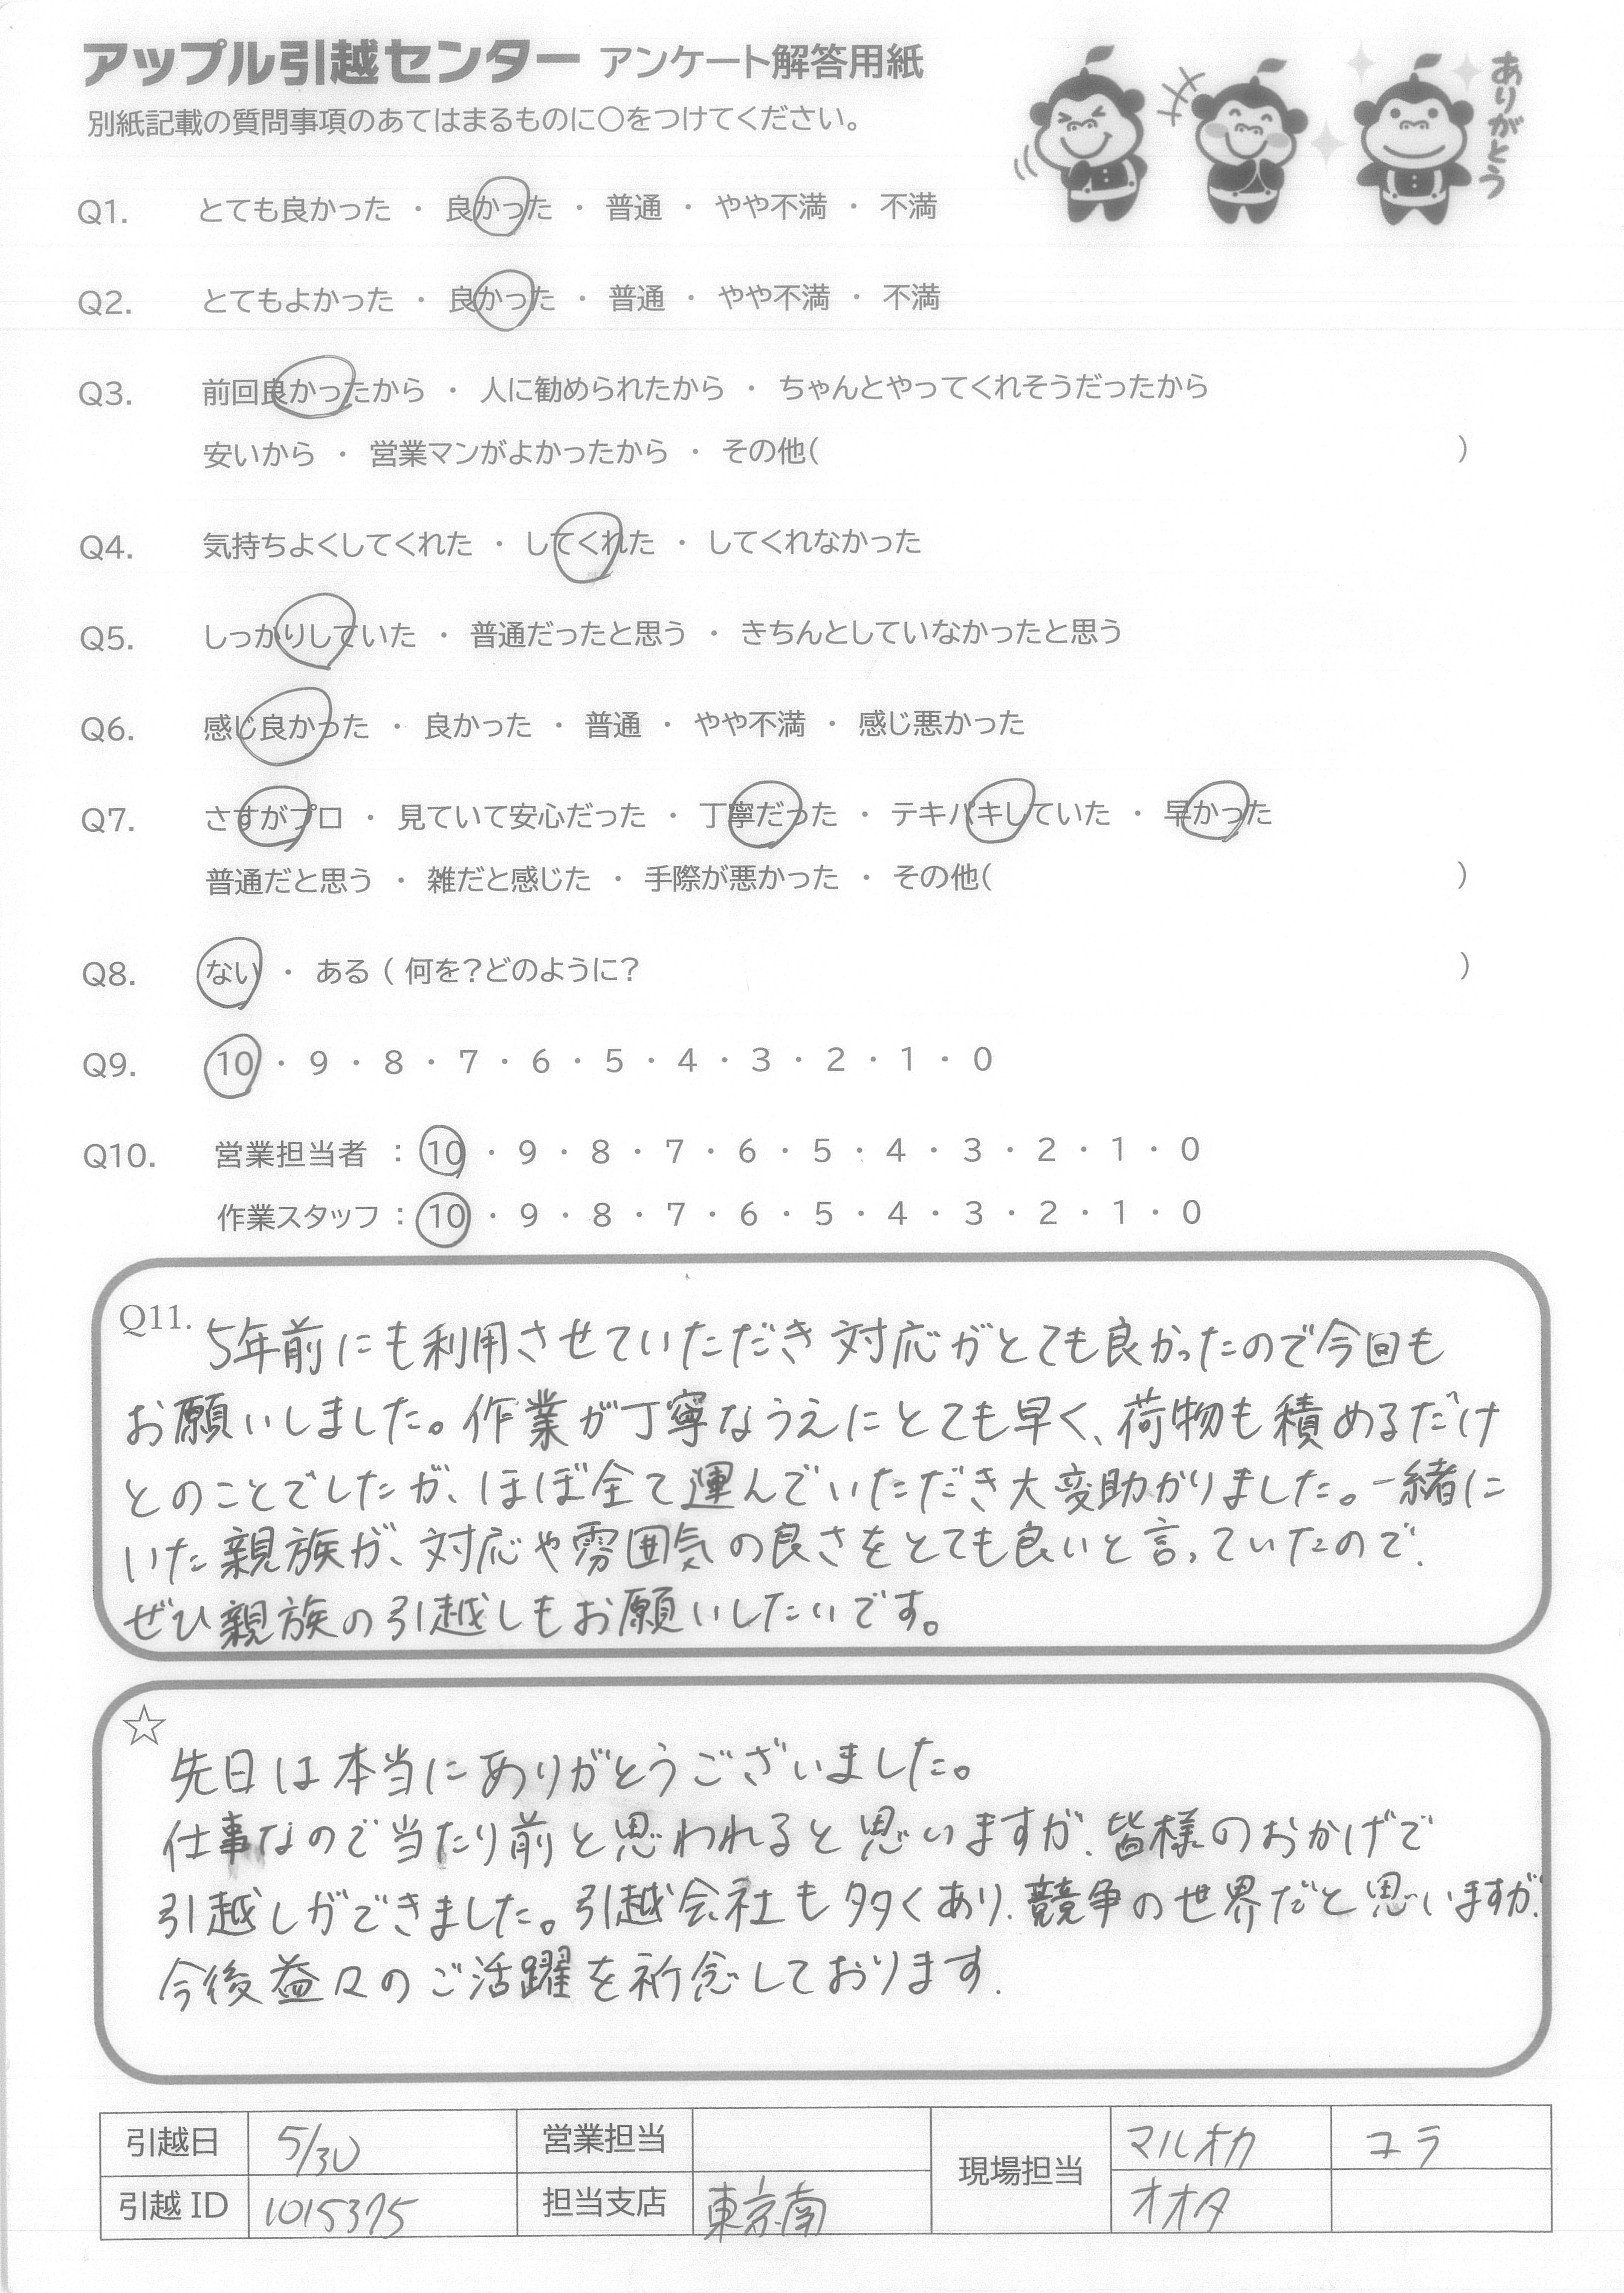 アップル引越センター アンケート解答用紙
別紙記載の質問事項のあてはまるものに○をつけてください。
ありがとう
Q1. とても良かった ・ 良かった ・ 普通 ・ やや不満 ・ 不満
Q2. とてもよかった ・ 良かった ・ 普通 ・ やや不満 ・ 不満
Q3. 前回良かったから ・ 人に勧められたから ・ ちゃんとやってくれそうだったから
安いから ・ 営業マンがよかったから ・ その他( )
Q4. 気持ちよくしてくれた ・ してくれた ・ してくれなかった
Q5. しっかりしていた ・ 普通だったと思う ・ きちんとしていなかったと思う
Q6. 感じ良かった ・ 良かった ・ 普通 ・ やや不満 ・ 感じ悪かった
Q7. さすがプロ ・ 見ていて安心だった ・ 丁寧だった ・ テキパキしていた ・ 早かった
普通だと思う ・ 雑だと感じた ・ 手際が悪かった ・ その他( )
Q8. ない ・ ある ( 何を?どのように? )
Q9. 10 ・ 9 ・ 8 ・ 7 ・ 6 ・ 5 ・ 4 ・ 3 ・ 2 ・ 1 ・ 0
Q10. 営業担当者 : 10 ・ 9 ・ 8 ・ 7 ・ 6 ・ 5 ・ 4 ・ 3 ・ 2 ・ 1 ・ 0
作業スタッフ : 10 ・ 9 ・ 8 ・ 7 ・ 6 ・ 5 ・ 4 ・ 3 ・ 2 ・ 1 ・ 0
Q11. 5年前にも利用させていただき対応がとても良かったので今回も
お願いしました。作業が丁寧なうえにとても早く、荷物も積めるだけ
とのことでしたが、ほぼ全て運んでいただき大変助かりました。一緒に
いた親族が、対応や雰囲気の良さをとても良いと言っていたので、
ぜひ親族の引越しもお願いしたいです。
☆
先日は本当にありがとうございました。
仕事なので当たり前と思われると思いますが、皆様のおかげで
引越しができました。引越会社も多くあり、競争の世界だと思いますが、
今後益々のご活躍を祈念しております.
引越日 5/30 営業担当 現場担当 マルオカ コラ
引越ID 1015375 担当支店 東京南 オオタ